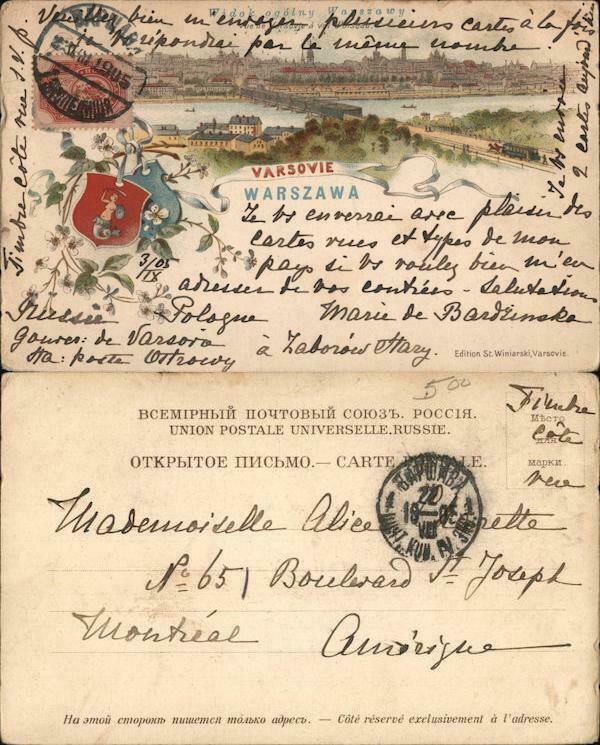 Widok ogólny Warszawy
Veuillez bien m'envoyer plusieurs cartes à la fois
je répondrai par le même nombre!
Timbre côté vue s.v.p
Je vs envoie
2 cartes aujourd
VARSOVIE
WARSZAWA
Je vs enverrai avec plaisir des
cartes vues et types de mon
pays si vs voulez bien m'en
adresser de vos contrées - Salutations
3/05
IX
Russie Pologne Marie de Bardzinska
Gouver: de Varsovie
sta: poste Ostrowy à Zaborów Stary.
Edition St. Winiarski, Varsovie.
500
ВСЕМІРНЫЙ ПОЧТОВЫЙ СОЮЗЪ. РОССІЯ.
UNION POSTALE UNIVERSELLE. RUSSIE.
ОТКРЫТОЕ ПИСЬМО.— CARTE POSTALE.
Мѣсто
для
марки.
Timbre
côté
vue
ВАРШАВА
Mademoiselle Alice
No 65 Boulevard St Joseph
Montréal Amérique
На этой сторонѣ пишется только адресъ. — Côté réservé exclusivement à l'adresse.